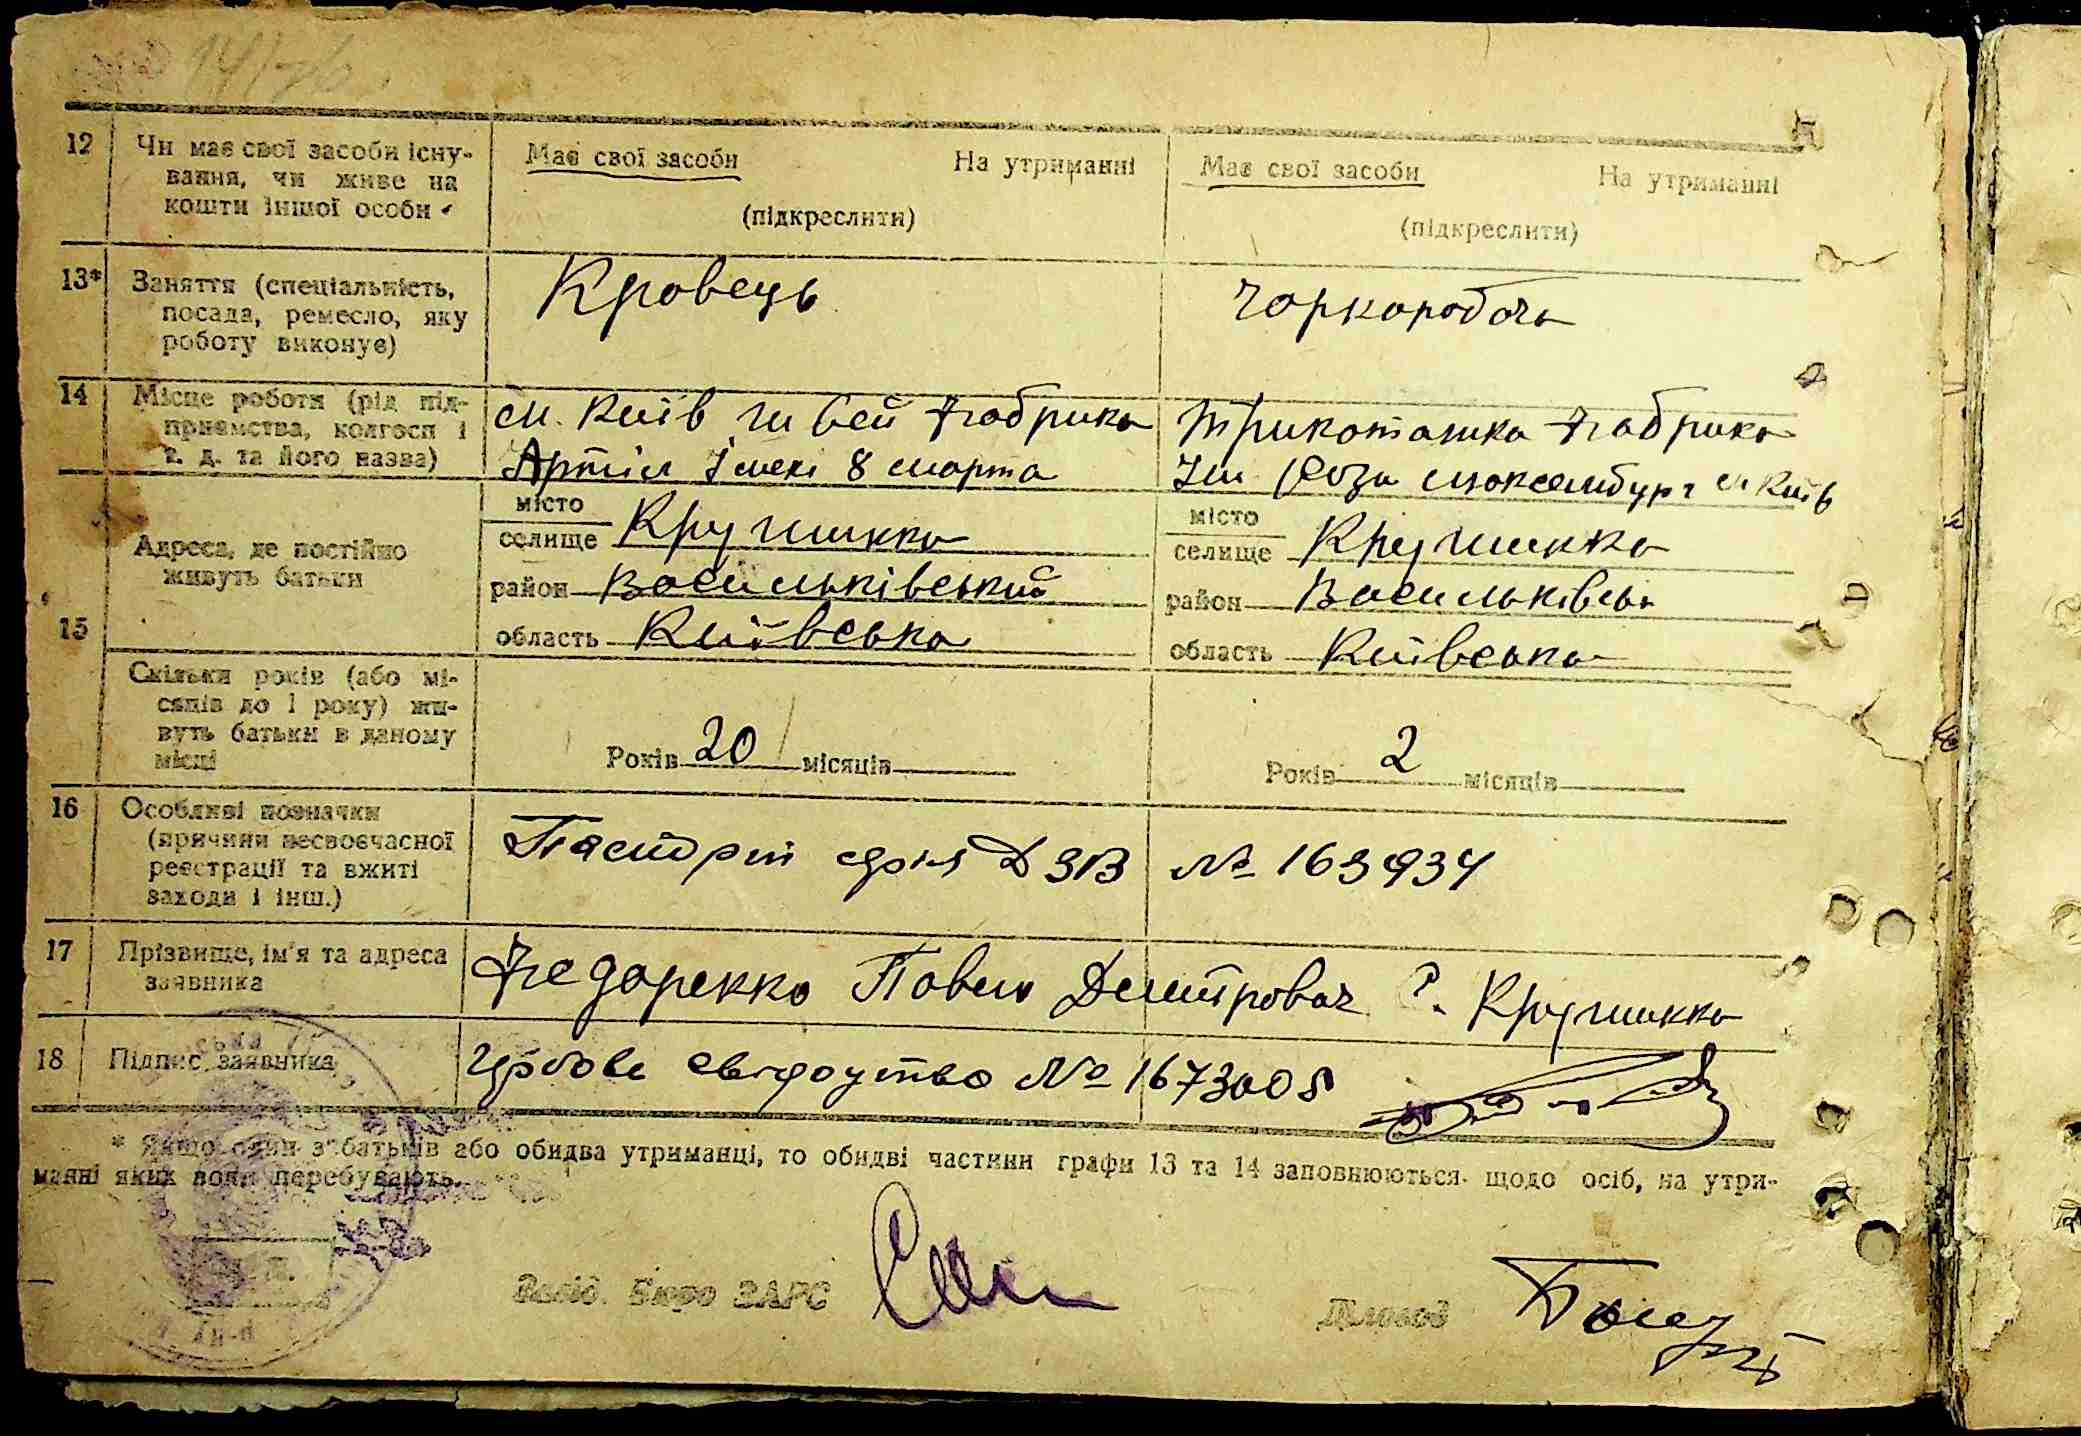 14/176
12 Чи має свої засоби існу-
вання, чи живе на
кошти іншої особи
Має свої засоби На утриманні
(підкреслити)
Має свої засоби На утриманні
(підкреслити)
13* Заняття (спеціальність,
посада, ремесло, яку
роботу виконує)
Кровець
Чоркоробоча
14 Місце роботи (рід під-
приємства, колгосп і
т. д. та його назва)
м. Київ швей фабрика
Артіл імені 8 марта
Трикотажка фабрика
Ім Роза Люксембург м Київ
15 Адреса, де постійно
живуть батьки
місто
селище Кругликка
район Васильківський
область Київська
місто
селище Кругликка
район Васильківськ
область Київська
Скільки років (або мі-
сяців до 1 року) жи-
вуть батьки в даному
місці
Років 20 місяців
Років 2 місяців
16 Особливі позначки
(причини несвоєчасної
реєстрації та вжиті
заходи і інш.)
Паспорт серія ДЗВ № 163934
17 Прізвище, ім'я та адреса
заявника
Федоренко Павло Дмитрович с. Кругликка
18 Підпис заявника
Шлюбове свідоцтво № 1673008
* Якщо один з батьків або обидва утриманці, то обидві частини графи 13 та 14 заповнюються щодо осіб, на утри-
манні яких вони перебувають.
Завід. Бюро ЗАРС
Діловод